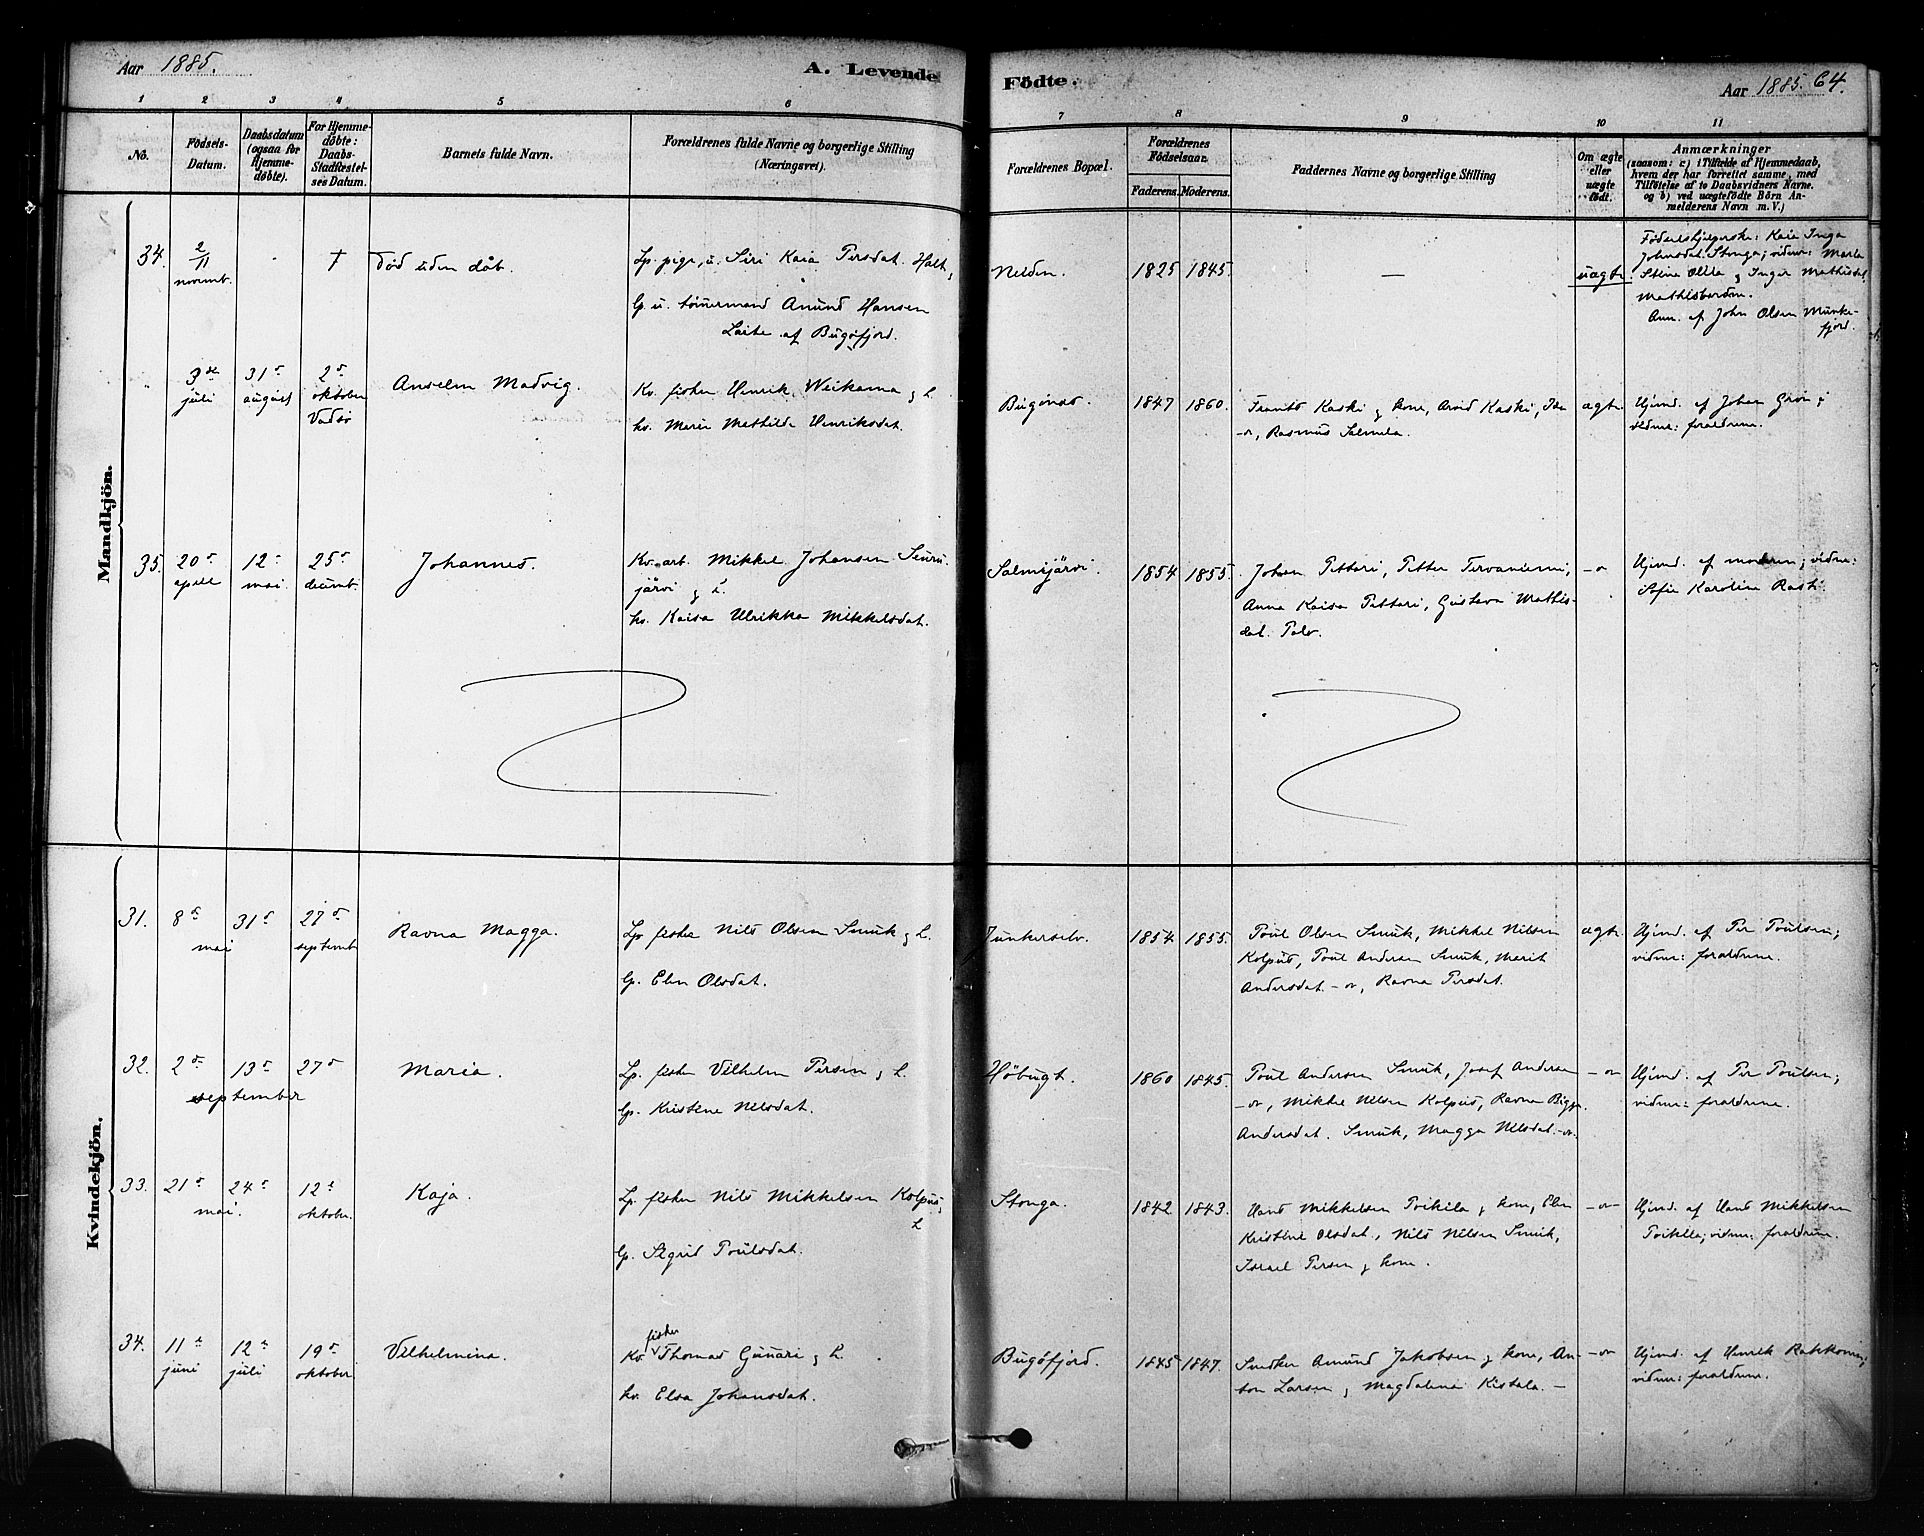 Aar 1885.
A. Levende Födte.
Aar 1885. 64.
1 2 3 4 5 6 7 8 9 10 11
No.
Födsels-
Datum.
Daabsdatum
(ogsaa for
Hjemme-
döbte).
For Hjemme-
døbte:
Daabs-
Stadfæstel-
ses Datum.
Barnets fulde Navn.
Forældrenes fulde Navne og borgerlige Stilling
(Næringsvei).
Forældrenes Bopæl.
Forældrenes
Födselsaar.
Faderens. Moderens.
Faddernes Navne og borgerlige Stilling
Om ægte
eller
uægte
født.
Anmærkninger
(saasom: a) i Tilfælde af Hjemmedaab,
hvem der har forrettet samme, med
Tilföielse af to Daabsvidners Navne.
og b) ved uægtefödte Börn An-
melderens Navn m. V.)
Mandkjön.
34. 2/11 novmb. † Død uden dåb.
Lp. pige, u. Siri Kaia Persdat. Halt,
lp. u. tømmermand Amund Hansen
Laite af Bugöfjord.
Neiden. 1825 1845. — uægte.
Fødselshjelperske: Kaia Inga
Johnsdat. Stonga; vidner: Maria
Stine Olsa & Inger Mathisdat.
Anm. af John Olsen Munke-
fjord.
" 3de juli 31s august 2s oktober Vadsö Anselm Madvig.
Kv. fisker Henrik Weikama & h.
kv. Marie Mathilde Henriksdat.
Bugönes 1847 1860.
Kaski & kone, Arvid Kaski, Ida
-"-, Rasmus Salmela.
ægte. Hjmd. af Johan Grön;
vidner: forældrene.
35. 20s april 12s mai 25s decmb. Johannes.
Kv. arb. Mikkel Johansen Seuru-
järvi & h.
kv. Kaisa Ulrikka Mikkelsdat.
Salmijärvi. 1854 1855.
Johan Pittari, Petter Tervaniemi,
Anna Kaisa Pittari, Gustava Mathis-
dat. Palo.
-"- Hjmd. af moderen; vidner:
Sofie Karoline Rasti.
Kvindekjön.
31. 8s 31s mai 27s septemb. Ravna Magga.
Lp. fisker Nils Olsen Smuk & h.
lp. Elen Olsdat.
Junkerselv. 1854 1855.
Poul Olsen Smuk, Mikkel Nilsen
Kolpus, Poul Andersen Smuk, Marit
Andersdat. -"-, Ravna Persdat.
ægte. Hjmd. af Per Poulsen;
vidner: forældrene.
32. 2s 13s 27s september Maria.
Lp. fisker Vilhelm Persen & h.
lp. Kristine Nilsdat.
Höbugt. 1860 1845.
Poul Andersen Smuk, Josef Andersen
-"-, Mikkel Nilsen Kolpus, Ravna Bigga
Andersdat. Smuk, Magga Nilsdat. -"-.
-"- Hjmd. af Per Poulsen;
vidner: forældrene.
33. 21s 24s mai. 12te oktober. Kaja.
Lp. fisker Nils Mikkelsen Kolpus &
h.
lp. Sigrid Poulsdat.
Stonga. 1842 1843.
Hans Mikkelsen Poikila & kone, Elen
Kristine Olsdat., Nils Nilsen Smuk,
Israel Persen & kone.
-"- Hjmd. af Hans Mikkelsen
Poikila; vidner: forældrene.
34. 11te juni 12te juli 19s oktober Vilhelmina.
fisker
Kv. Thomas Gunari & h.
kv. Elsa Johansdat.
Bugöfjord. 1845 1847.
Snedker Amund Jakobsen & kone, An-
ton Larsen & Magdalena Kistala. —
-"- Hjmd. af Henrik
vidner: forældrene.